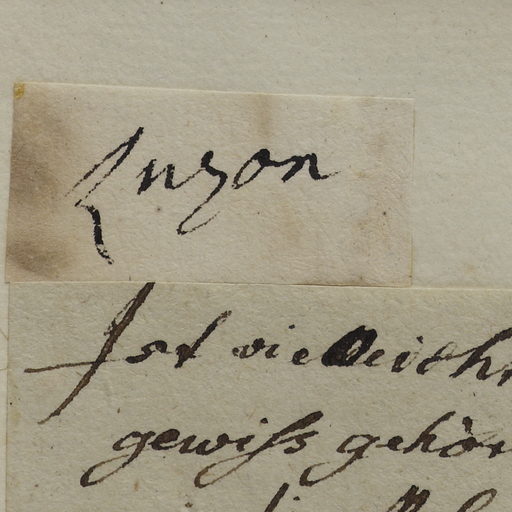 Luzon
Ist vielleicht
gewiss gehör